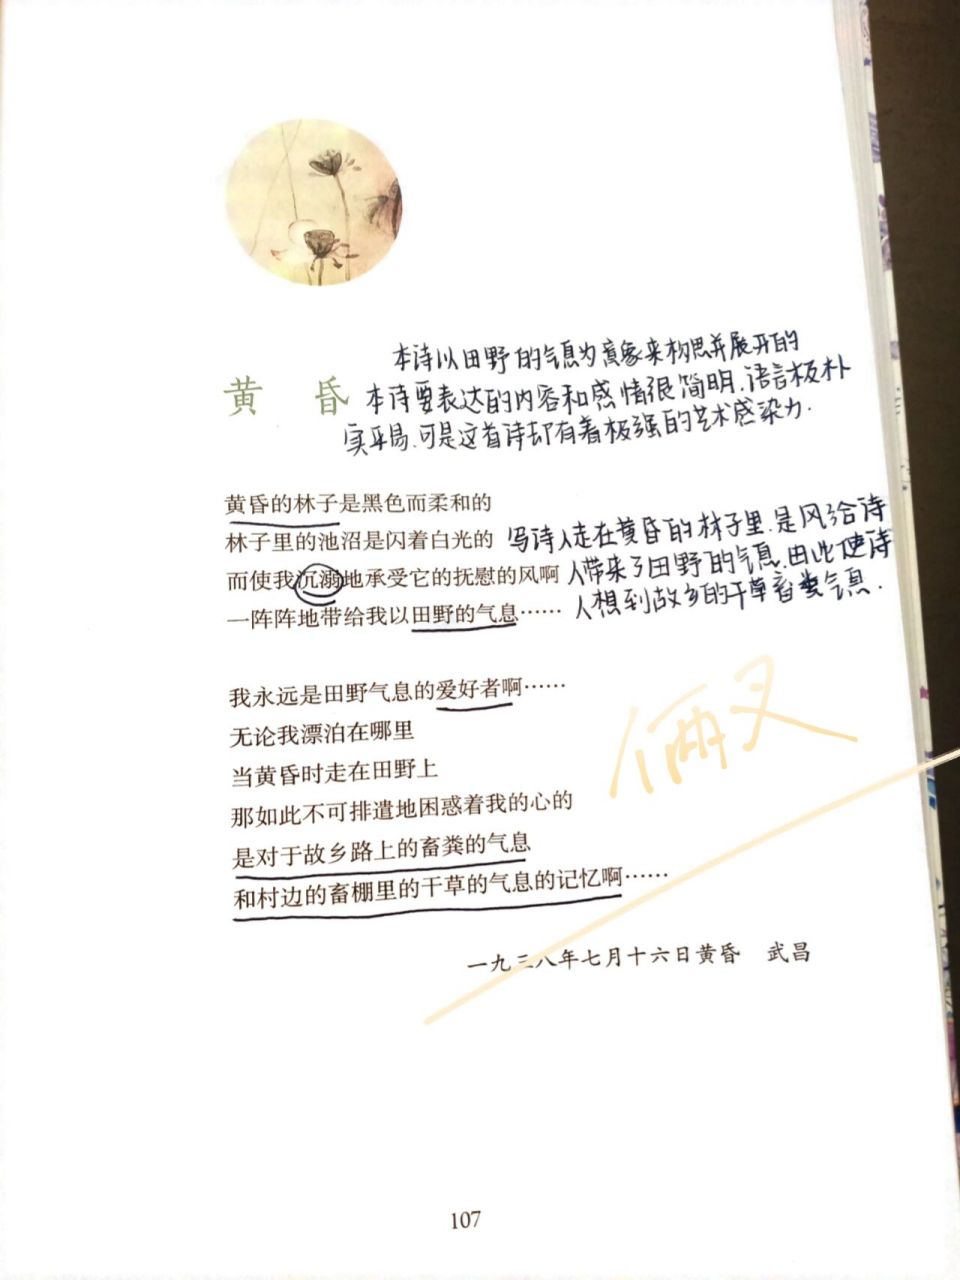 本诗以田野的气息为意象来构思并展开的
黄 昏
本诗要表达的内容和感情很简明.语言极朴
实平易.可是这首诗却有着极强的艺术感染力.
黄昏的林子是黑色而柔和的
林子里的池沼是闪着白光的
而使我沉溺地承受它的抚慰的风啊
一阵阵地带给我以田野的气息……
写诗人走在黄昏的林子里.是风给诗
人带来了田野的气息.由此使诗
人想到故乡的干草畜粪气息.
我永远是田野气息的爱好者啊……
无论我漂泊在哪里
当黄昏时走在田野上
那如此不可排遣地困惑着我的心的
是对于故乡路上的畜粪的气息
和村边的畜棚里的干草的气息的记忆啊……
俩叉
一九三八年七月十六日黄昏 武昌
107